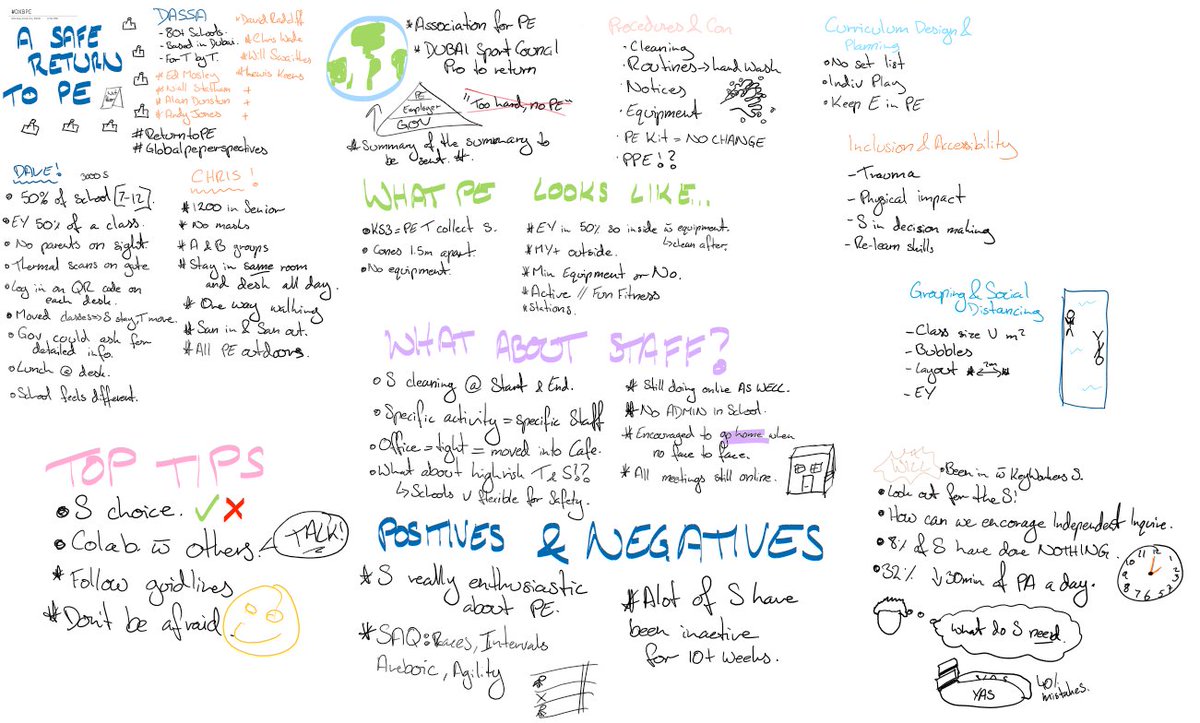 #DXBPE
A SAFE
RETURN
TO PE
DASSA
- 80+ Schools.
- Based in Dubai.
- For T by T.
* Ed Mosley
* Niall Statham +
* Alan Dunston +
* Andy Jones +
* David Radcliff
* Chris Wade
* Will
* Lewis
#ReturntoPE
#Globalpeperspectives
* Association for PE
* DUBAI Sport Council
Pro to return
PE
Employer
GOV
"Too hard, no PE"
* Summary of the summary to
be sent. *
Procedures & Con
· Cleaning
· Routines → hand wash
· Notices
· Equipment
· PE Kit = NO CHANGE
· PPE!?
Curriculum Design &
Planning
• No set list
• Indiv Play
• Keep E in PE
Inclusion & Accessibility
- Trauma
- Physical impact
- S in decision making
- Re-learn skills
Grouping & Social
Distancing
- Class size U m²
- Bubbles
- Layout * 2m *
- EY
DAVE!
3000 S
• 50% of school [7-12].
• EY 50% of a class.
• No parents on sight
• Thermal scans on gate
• Log in on QR code on
each desk.
• Moved classes => S stay, T move.
• Gov could ask for
detailed info.
• Lunch @ desk.
• School feels different.
CHRIS!
* 1200 in Senior
* No masks
* A & B groups
* Stay in same room
and desk all day.
* One way walking
* San in & San out.
* All PE outdoors.
WHAT PE LOOKS LIKE...
• KS3 = PE T collect S.
• Cones 1.5m apart.
• No equipment.
* EY in 50% so inside w̄ equipment.
↳ clean after.
* MY+ outside.
* Min Equipment or No.
* Active // Fun Fitness
* Stations.
WHAT ABOUT STAFF?
• S cleaning @ Start & End.
• Specific activity = specific Staff
• Office = tight = moved into Cafe.
• What about highrisk T & S!?
↳ Schools U flexible for Safety.
* Still doing online AS WELL.
* No ADMIN in School.
* Encouraged to go home when
no face to face.
* All meetings still online.
TOP TIPS
• S choice. ✓ ✗
• Colab w̄ others
TALK!
* Follow guidlines
* Don't be afraid.
POSITIVES & NEGATIVES
* S really enthusiastic
about PE.
* SAQ: Races, Intervals
Areboic, Agility
* Alot of S have
been inactive
for 10+ weeks.
WILL
• Been in w̄ KeyWorkers S.
• Look out for the S!
• How can we encorage Independent Inquire.
• 8% of S have done NOTHING.
• 32% ↓ 30min of PA a day.
11 12 1
10 2
9 3
8 4
7 6 5
What do S need.
YAS
40%
mistakes.